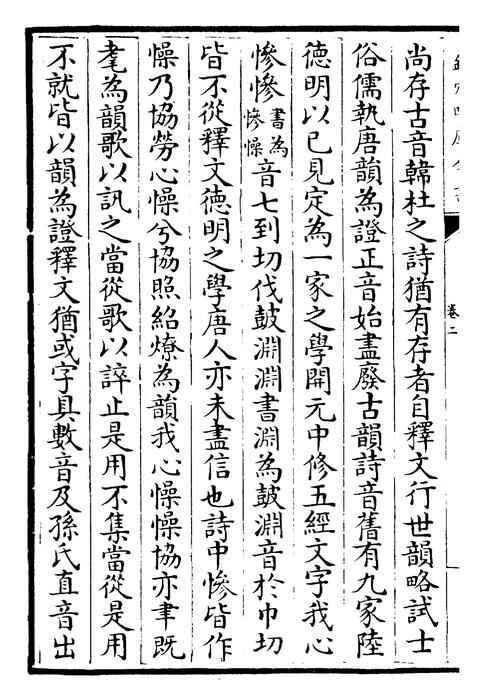 尚存古音韓杜之詩猶有存者自釋文行世韻略試士
俗儒執唐韻為證正音始盡廢古韻詩音舊有九家陸
德明以已見定為一家之學開元中修五經文字我心
慘慘書為慘懆音七到切伐鼓淵淵書淵為鼓淵音於巾切
皆不從釋文德明之學唐人亦未盡信也詩中慘皆作
懆乃協勞心懆兮協照紹燎為韻我心懆懆協亦聿既
耄為韻歌以訊之當從歌以誶止是用不集當從是用
不就皆以韻為證釋文猶或字具數音及孫氏直音出
卷二